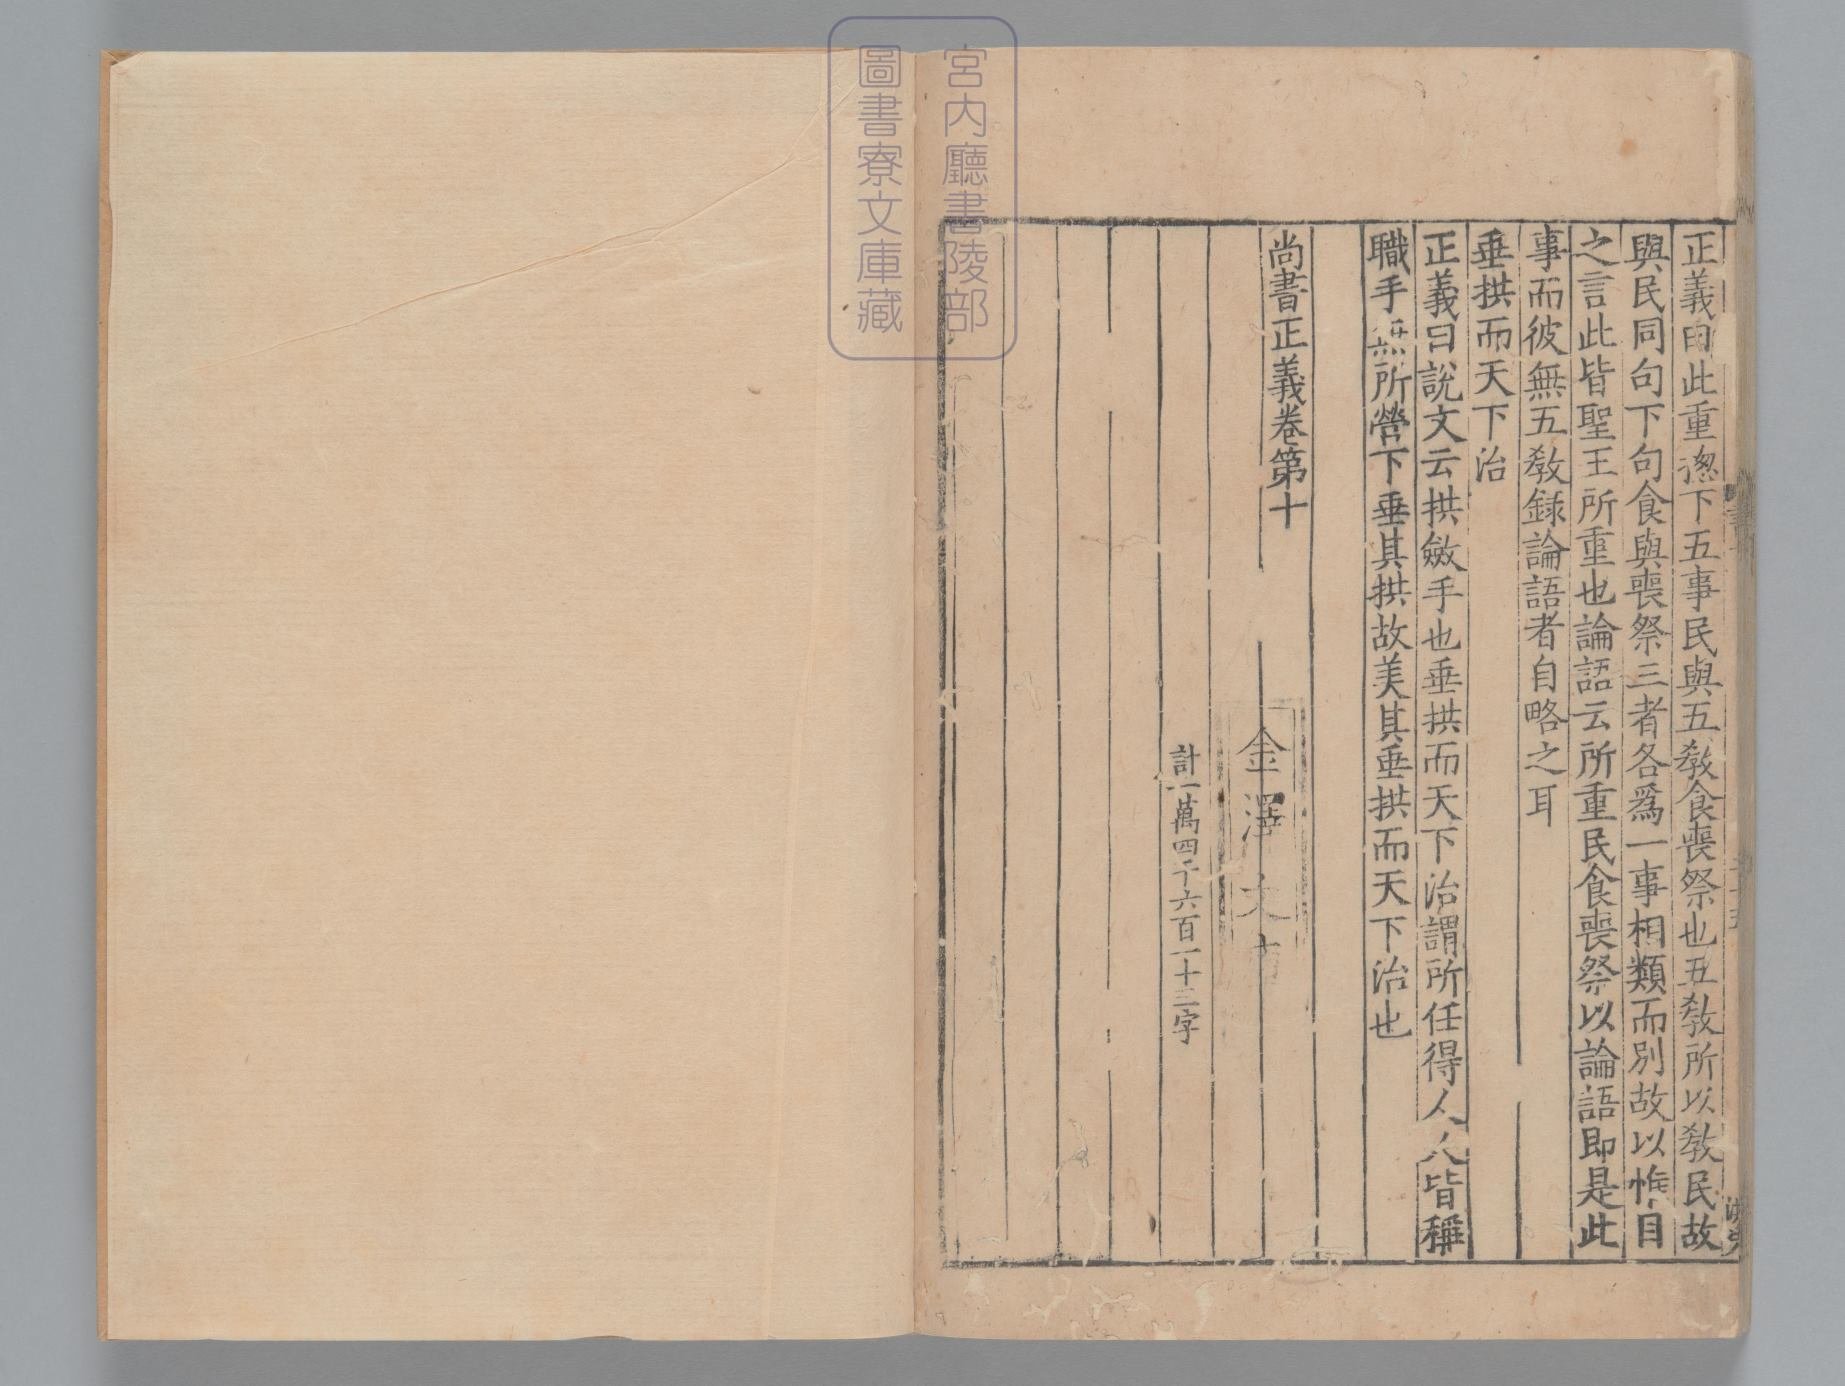 正義曰此重揔下五事民與五敎食喪祭也五敎所以敎民故
與民同句下句食與喪祭三者各爲一事相類而別故以惟目
之言此皆聖王所重也論語云所重民食喪祭以論語即是此
事而彼無五敎録論語者自略之耳
垂拱而天下治
正義曰說文云拱斂手也垂拱而天下治謂所任得人人皆稱
職手無所營下垂其拱故美其垂拱而天下治也
尚書正義卷第十
金澤文
計一萬四千六百一十三字
宮内廳書陵部
圖書寮文庫藏